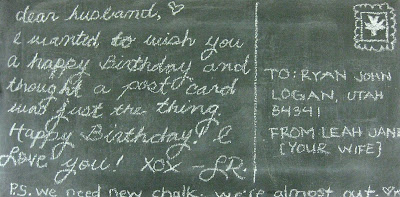 dear husband, ♡
I wanted to wish you
a happy Birthday and
thought a post card
was just the thing.
Happy Birthday! I
Love you! XOX -LR.
P.S. we need new chalk. we're almost out. ♡
TO: RYAN JOHN
LOGAN, UTAH
84341
FROM LEAH JANE
[YOUR WIFE]